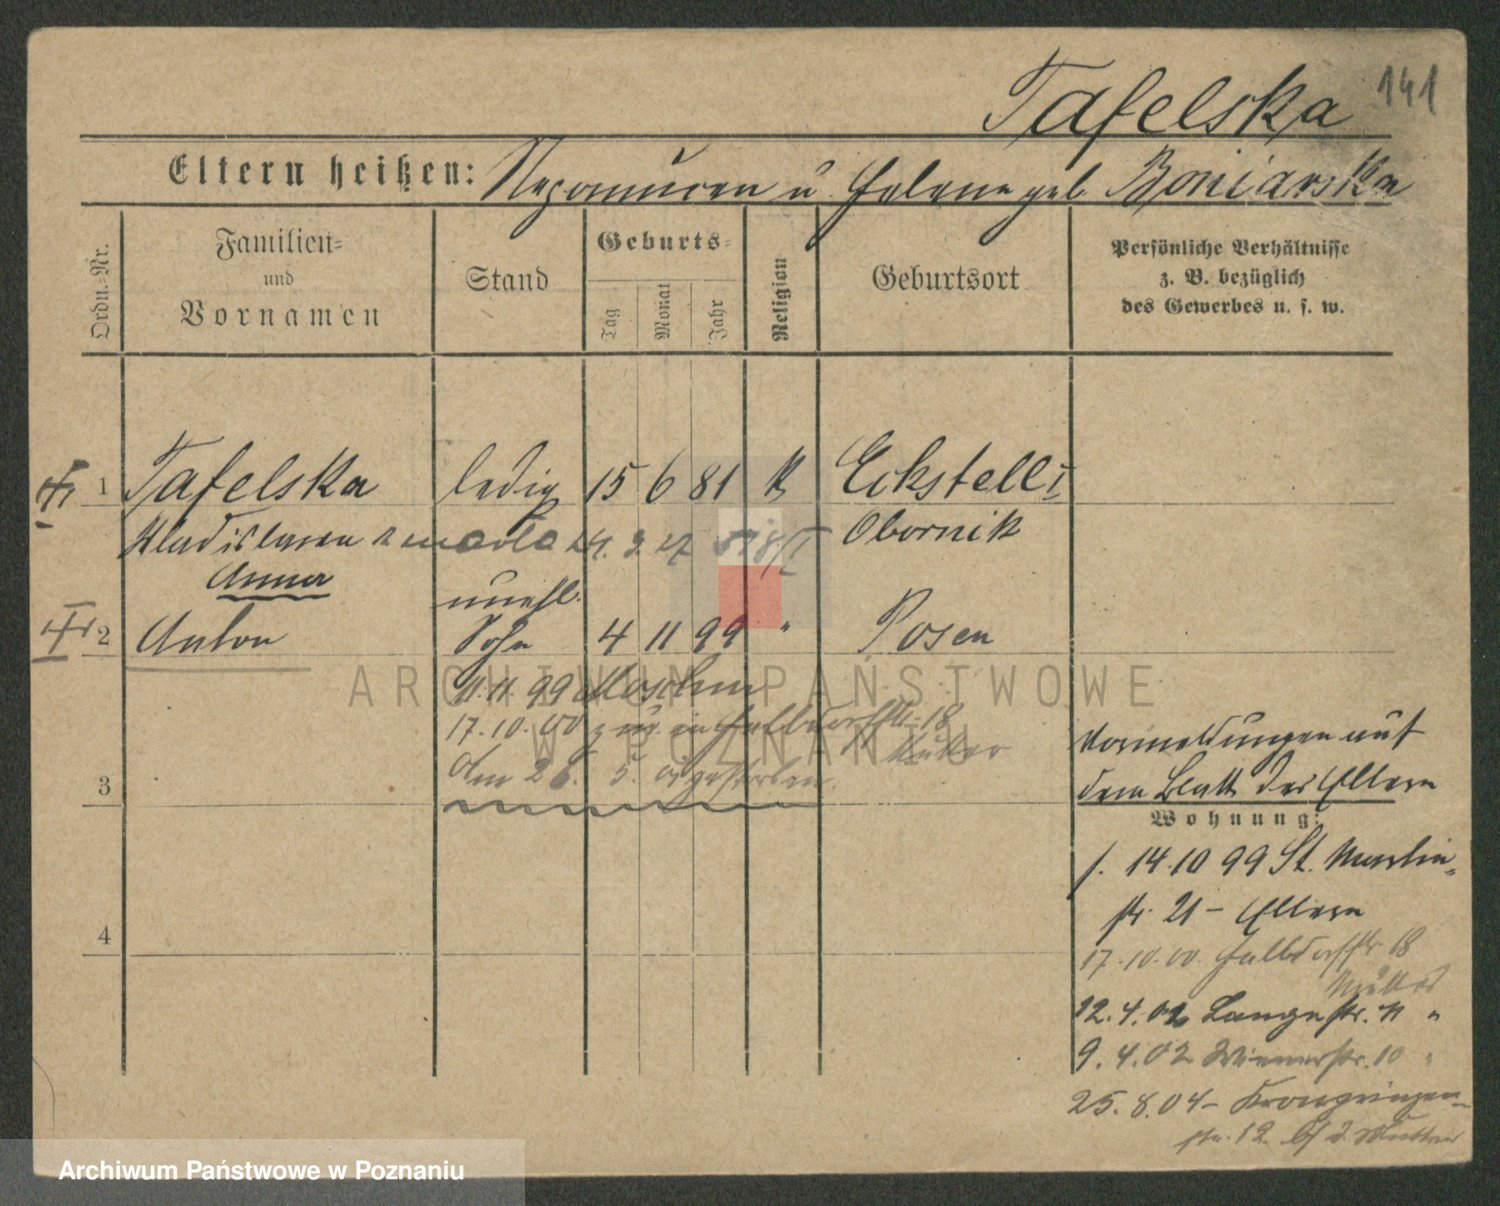 141
Tafelska
Eltern heißen: Nepomucen u Helene geb. Boniarska
Ordn.-Nr.
Familien-
und
Vornamen
Stand
Geburts-
Tag
Monat
Jahr
Religion
Geburtsort
Persönliche Verhältnisse
z. B. bezüglich
des Gewerbes u. s. w.
1 Tafelska ledig 15 6 81 k Eckstelle
Wladislawa Obornik
Anna
unehl.
2 Anton Sohn 4 11 99 " Posen
11.11.99 Moschin
17.10.00 zug. in Halbdorfstr. 18
Mutter
Am 28. 5. 01 gestorben.
3
Vormeldungen auf
dem Blatt der Eltern
Wohnung:
f. 14.10 99 St. Martin-
str. 21 - Eltern
4
17.10.00. Halbdorfstr. 18
Mutter
12.4.02 Langestr. 11 "
9.4.02 Wienerstr. 10 "
25.8.04 - Kronprinzen-
str. 12. b/ d. Mutter
ARCHIWUM PAŃSTWOWE
W POZNANIU
Archiwum Państwowe w Poznaniu